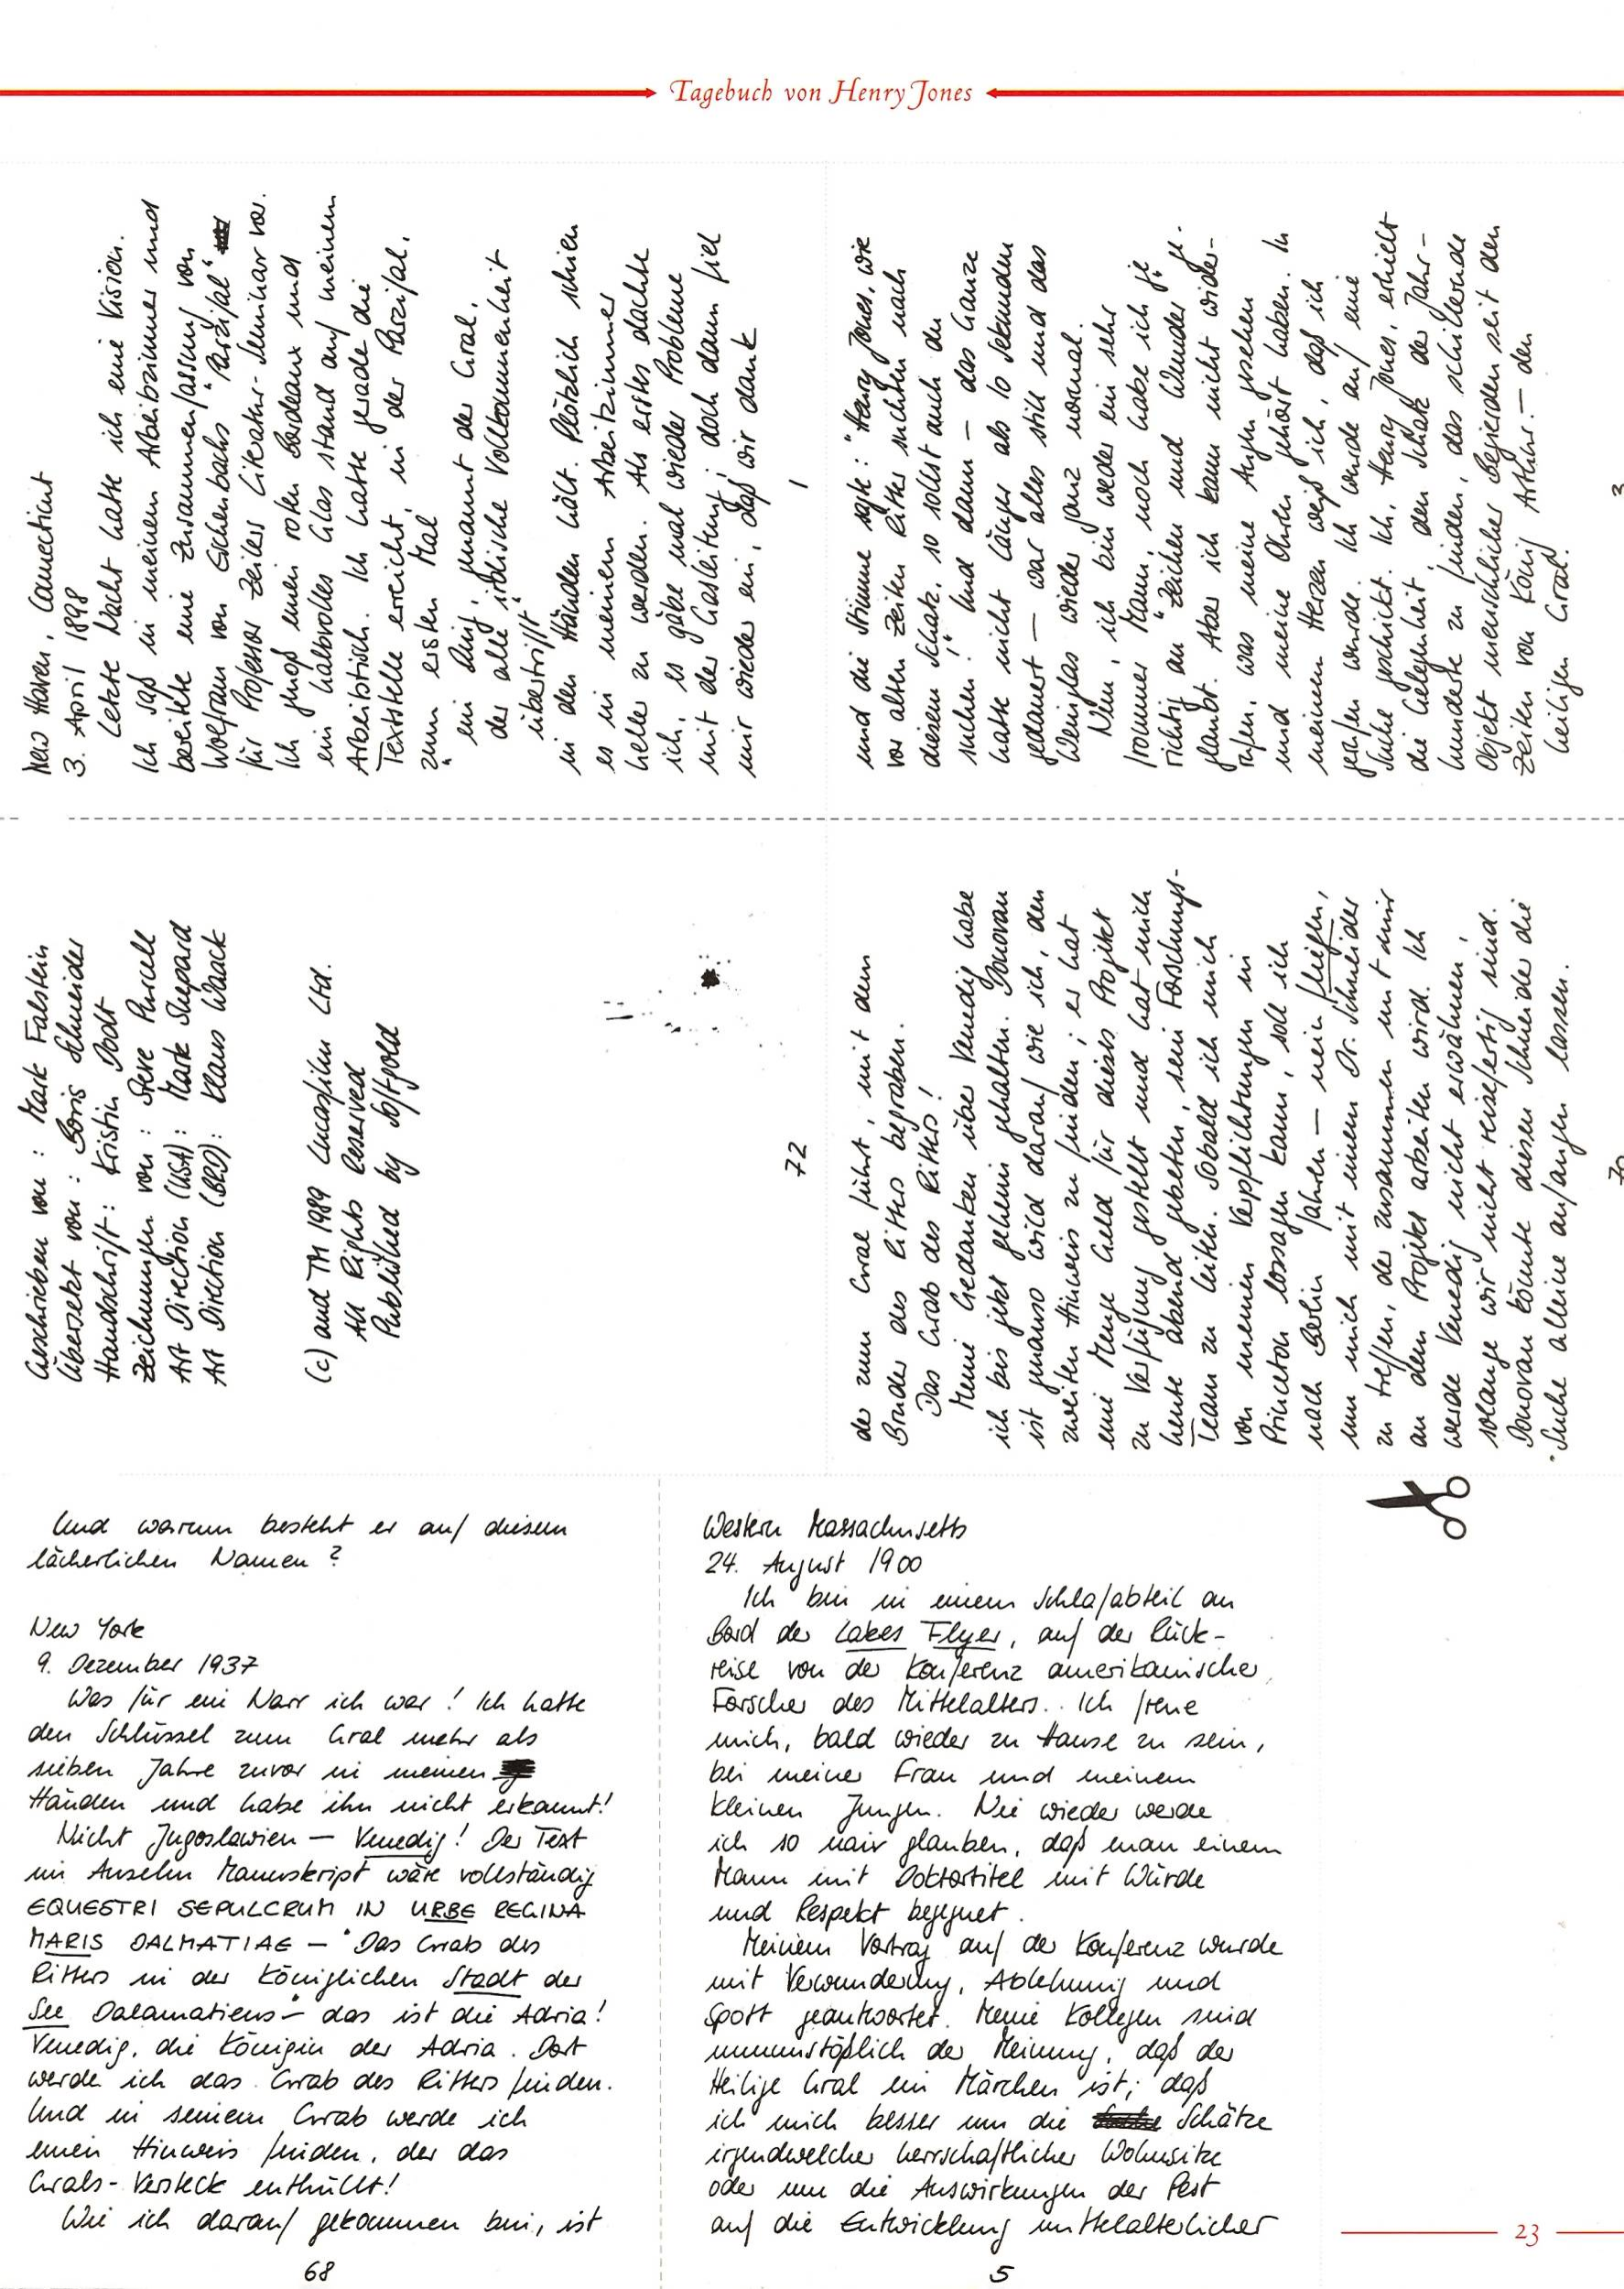 Tagebuch von Henry Jones
New Haven, Connecticut
3. April 1898
Letzte Nacht hatte ich eine Vision.
Ich saß in meinem Arbeitszimmer und
bereitete eine Zusammenfassung von
Wolfram von Eschenbachs "Parzifal"
für Professor Zeilers Literatur-Seminar vor.
Ich genoß einen roten Bordeaux und
ein halbvolles Glas stand auf meinem
Arbeitstisch. Ich hatte gerade die
Textstelle erreicht, in der Parzifal,
zum ersten Mal
"ein Ding, genannt der Gral,
der alle irdische Vollkommenheit
übertrifft"
in den Händen hält. Plötzlich schien
es in meinem Arbeitzimmer
heller zu werden. Als erstes dachte
ich, es gäbe mal wieder Probleme
mit der Gasleitung; doch dann fiel
mir wieder ein, daß wir dank
1
und die Stimme sagte: "Henry Jones, wie
vor alten Zeiten Ritter suchten nach
diesem Schatz, so sollst auch du
suchen!" Und dann — das Ganze
hatte nicht länger als 10 Sekunden
gedauert — war alles still und das
Weinglas wieder ganz normal.
Nun, ich bin weder ein sehr
frommer Mann, noch habe ich je
richtig an "Zeichen und Wunder" ge-
glaubt. Aber ich kann nicht wider-
rufen, was meine Augen gesehen
und meine Ohren gehört haben. In
meinem Herzen weiß ich, daß ich
gerufen wurde. Ich wurde auf eine
Suche geschickt. Ich, Henry Jones, erhielt
die Gelegenheit, den Schatz der Jahr-
hunderte zu finden, das schillernde
Objekt menschlicher Begierden seit den
Zeiten von König Arthur — den
heiligen Gral.
3
Geschrieben von: Mark Falstein
Übersetzt von: Boris Schneider
Handschrift: Kristin Dodt
Zeichnungen von: Steve Purcell
Art Direction (USA): Mark Shepard
Art Direction (BRD): Klaus Waack
(c) and TM 1989 Lucasfilm Ltd.
All Rights Reserved
Published by Softgold
72
der zum Gral führt, mit dem
Bruder des Ritters begraben.
Das Grab des Ritters!
Meine Gedanken über Venedig habe
ich bis jetzt geheim gehalten. Donovan
ist genauso wild darauf wie ich, den
zweiten Hinweis zu finden; er hat
eine Menge Geld für dieses Projekt
zu Verfügung gestellt und hat mich
heute abend gebeten, sein Forschungs-
Team zu leiten. Sobald ich mich
von meinen Verpflichtungen in
Princeton lossagen kann, soll ich
nach Berlin fahren — nein fliegen,
um mich mit einem Dr. Schneider
zu treffen, der zusammen mit mir
an dem Projekt arbeiten wird. Ich
werde Venedig nicht erwähnen,
solange wir nicht reisefertig sind.
Donovan könnte diesen Schneider die
Suche alleine anfangen lassen.
70
Und warum besteht er auf diesem
lächerlichen Namen?
New York
9. Dezember 1937
Was für ein Narr ich war! Ich hatte
den Schlüssel zum Gral mehr als
sieben Jahre zuvor in meinen
Händen und habe ihn nicht erkannt!
Nicht Jugoslawien — Venedig! Der Text
im Anselm Manuskript wäre vollständig
EQUESTRI SEPULCRUM IN URBE REGINA
MARIS DALMATIAE — "Das Grab des
Ritters in der Königlichen Stadt der
See Dalamatiens" — das ist die Adria!
Venedig, die Königin der Adria. Dort
werde ich das Grab des Ritters finden.
Und in seinem Grab werde ich
einen Hinweis finden, der das
Grals-Versteck enthüllt!
Wie ich darauf gekommen bin, ist
68
Western Massachusetts
24. August 1900
Ich bin in einem Schlafabteil an
Bord der Lakes Flyer, auf der Rück-
reise von der Konferenz amerikanischer
Forscher des Mittelalters. Ich freue
mich, bald wieder zu Hause zu sein,
bei meiner Frau und meinem
kleinen Jungen. Nie wieder werde
ich so naiv glauben, daß man einem
Mann mit Doktortitel mit Würde
und Respekt begegnet.
Meinem Vortrag auf der Konferenz wurde
mit Verwunderung, Ablehnung und
Spott geantwortet. Meine Kollegen sind
unumstößlich der Meinung, daß der
Heilige Gral ein Märchen ist; daß
ich mich besser um die Schätze
irgendwelcher herrschaftlicher Wohnsitze
oder um die Auswirkungen der Pest
auf die Entwicklung mittelalterlicher
5
23